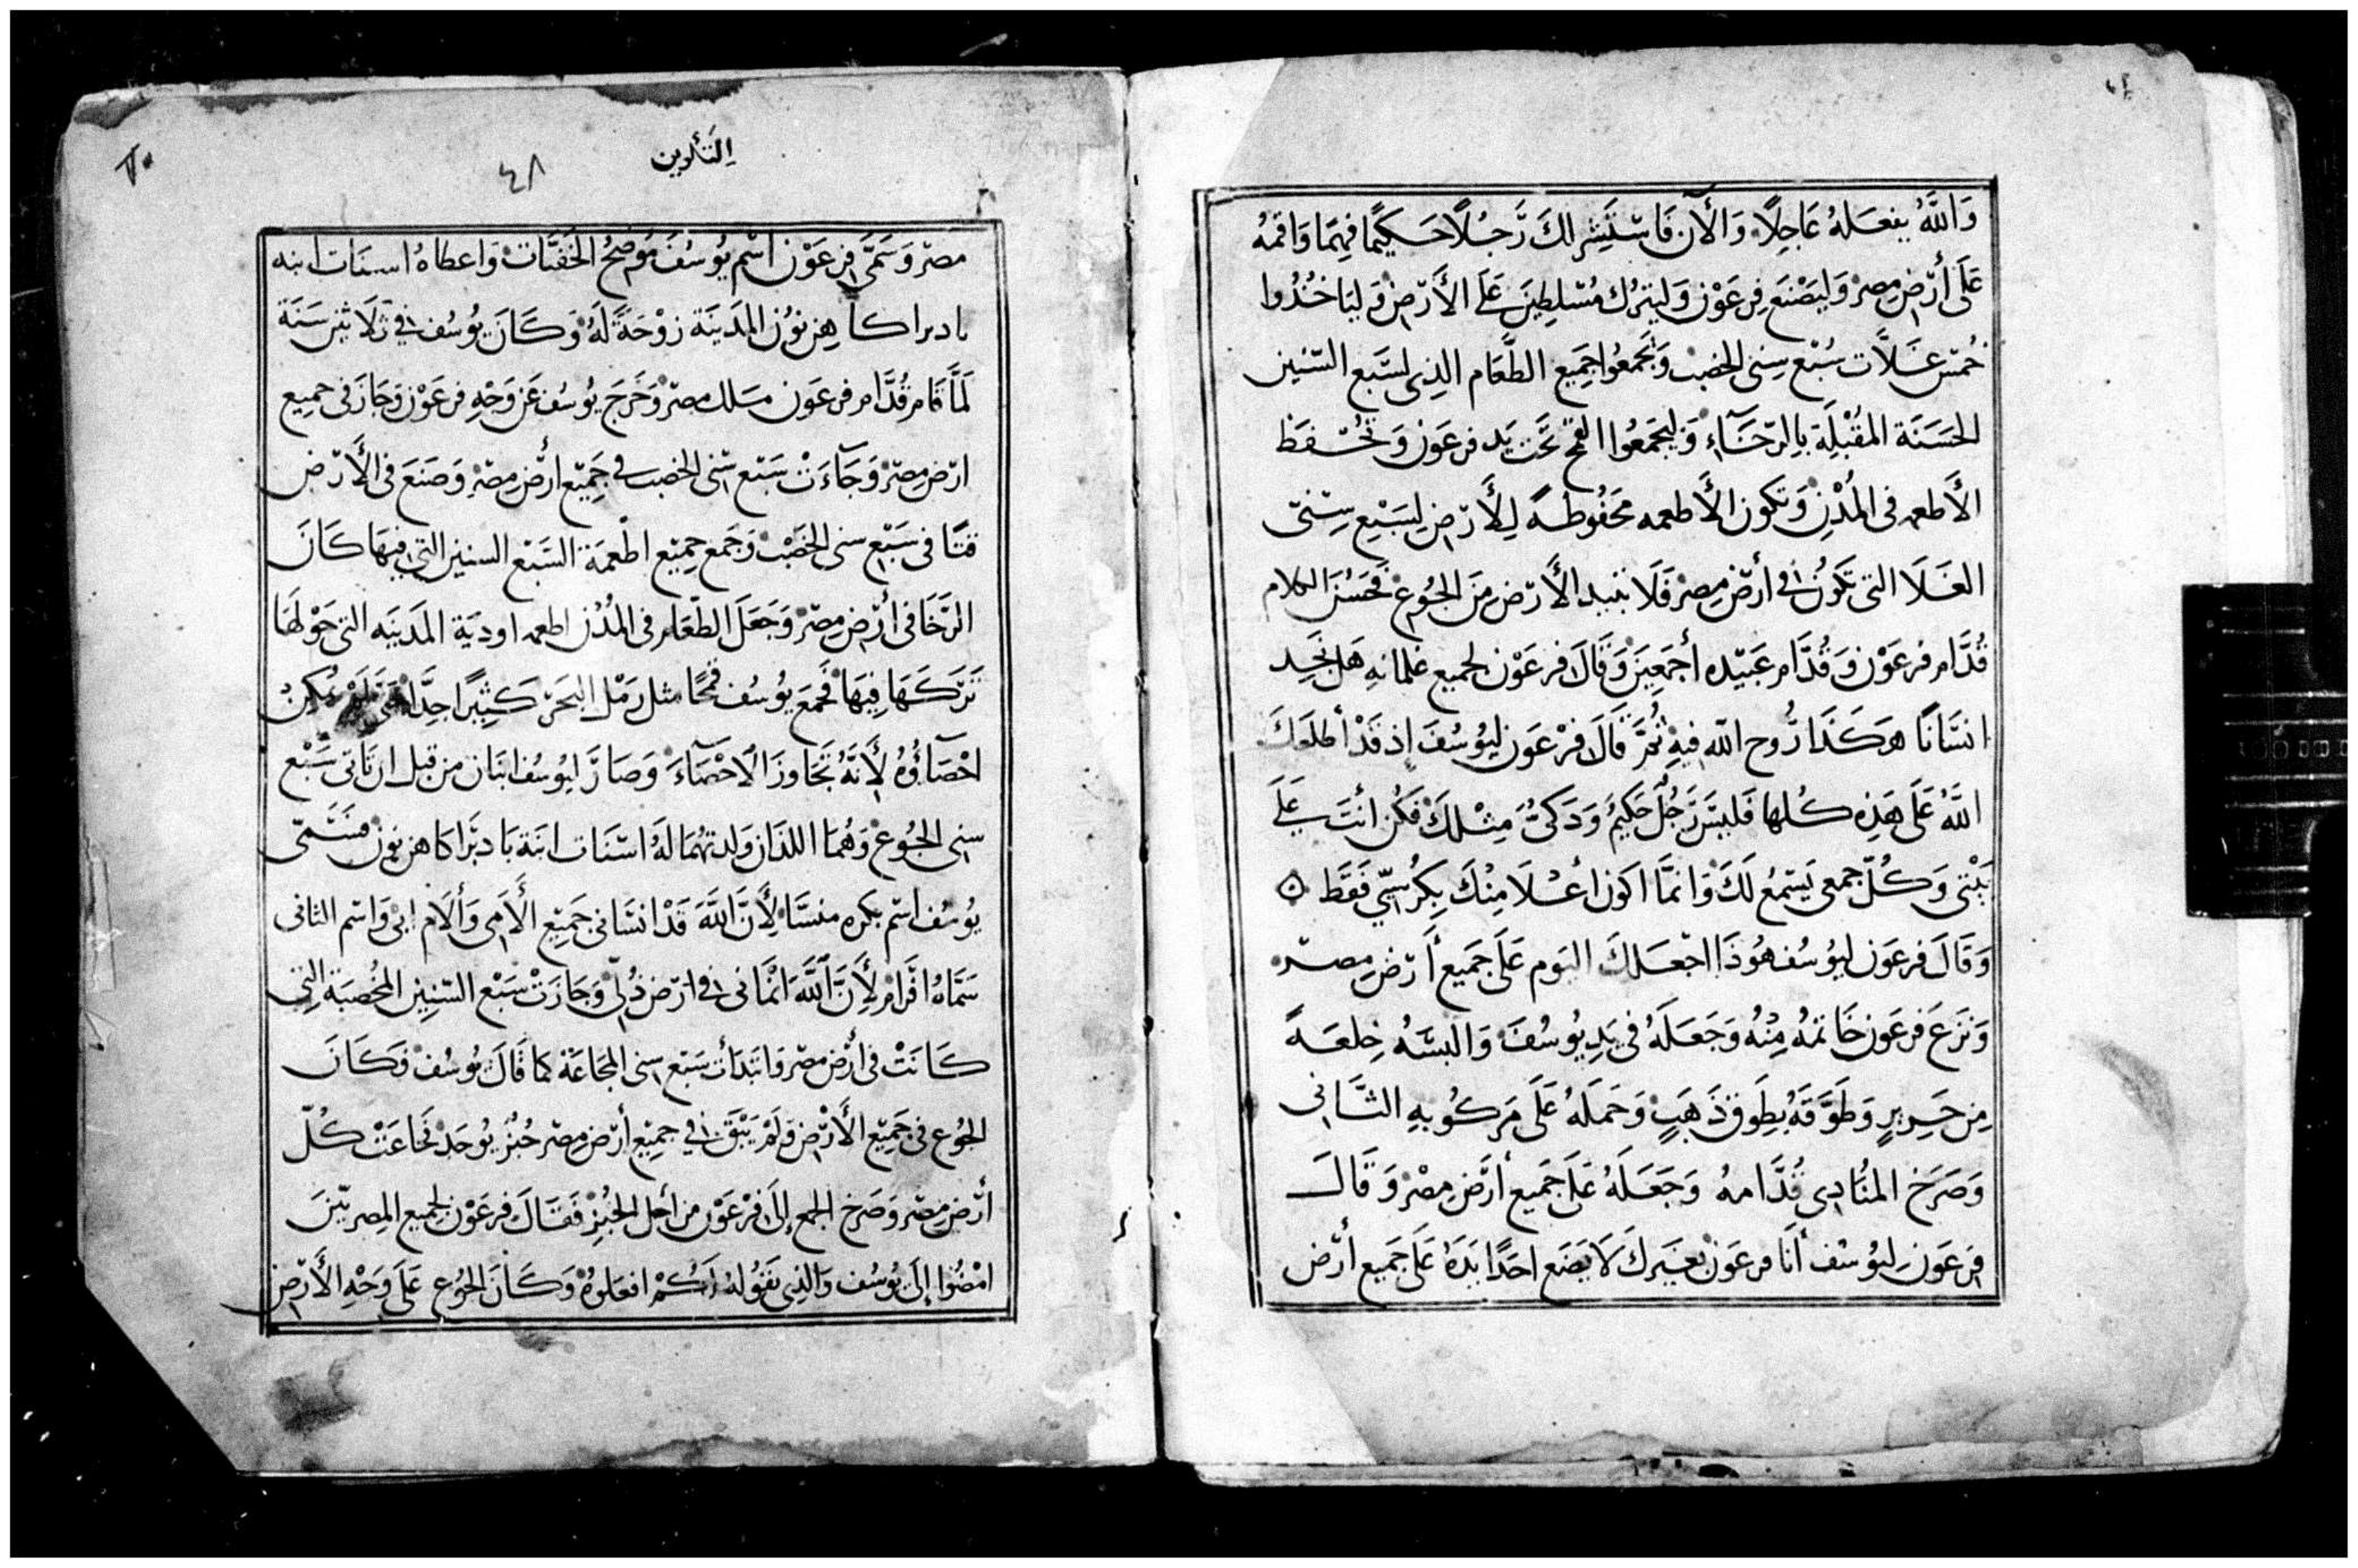 وَاللَّهُ يفعَلهُ عَاجِلًا وَالآن فَاستَشِر لكَ رَّجُلًا حَكيمًا فهِمَا وَاقمهُ
عَلَى أَرْض مِصر وَليَصْنَع فِرعَوْن وَليترُك مُسَلِطِينَ عَلَى الأَرْض وَليَاخُذُوا
خُمسَ غَلَّات سُبْع سِنِى الخصْب وَيَجْمَعُوا جَمِيع الطَّعَام الذِى لسَّبع السّنين
الحَسَنَة المقُبْلِة بِالرّخَآءِ وَليجمَعُوا القمح تحَّت يَد فرعَوْن وَتُحْفَظ
الأَطعمه فى المُدْنِ وَتكون الأَطعمه مَحْفُوظةً لِلأَرْض لِسَبْعِ سِنىّ
الغَلَا التى تَكوُن فى أَرْض مِصْر فَلَا تبيد الأَرْض مِنَ الجُوع فحَسُنَ الكلام
قُدَّام فرعَوْن وَقُدَّام عَبيّده أَجمَعِينَ وَقَالَ فرعَوْن لجميع غلمانهِ هَل نَجِد
انسَانًا هَكَذَا رُّوح اللّه فيهِ ثُمَّ قَالَ فرْعَون ليوُسُفَ إِذ قَدْ أطلعَكَ
اللَّهُ عَلَى هَذِه كُلها فَليسَ رَجُلٌ حَكيمٌ وَذكىٌّ مِثْلكَ فَكُن أَنتَ عَلَى
بَيْتى وَكُلّ جمعى يَسْتمعُ لَكَ وَانمَّا اكون اعْلَا مِنْكَ بِكُرْسِيّ فَقَط
وَقَالَ فرعَون ليوُسُف هُوَذَا اجْعَلكَ اليَوم عَلَى جَمِيع أَرْض مِصْر
وَنزعَ فرعَون خَاتمهُ مِنْهُ وَجَعَلهُ فى يَدِ يوُسُفَ وَالبسَهُ خِلعَةً
مِن حَرِيرٍ وَطَوَّقَهُ بِطَوق ذَهَبٍ وَحَمَلَهُ عَلَى مَركُوبهِ الثَّانى
وَصَرَخ المنُادِى قُدَّامهُ وَجَعَلَهُ عَلَى جَمِيع أَرْض مِصْر وَقَالَ
فِرعَوْن لِيوُسُف أَنَا فرعَوْن بغيَركَ لَا يَضَع احَدًا يَدَهُ عَلَى جَمِيع أَرْض
التَّكوين
٤٨
مصْر وَسَمَّى فِرعَوْن اسْم يُوسُفَ مُوَضِحُ الخَفيَّات وَاعطاهُ اسنَات ابنه
بادبرا كاهِن نوُن المَدَينَة زوْجَةً لَهُ وَكَانَ يُوسُف فى ثَلَاثين سَنَة
لَمَّا قَام قُدَّام فرعَون مَلك مصْر وَخَرَجَ يُوسُف عَن وَجْهِ فرعَوْن وَجَازَ فى جميع
ارْض مِصْر وَجَآءَتْ سَبَّع سْنى الخصب فى جَمِيَّع أَرْض مِصْر وَصَنعَ فى الأَرْض
قتَّا فى سَبْع سنى الخَصْب وَجَمع جميْع اطْعمَة السَّبَّع السنين التي فيهَا كَانَ
الرَّخَا فى أَرْض مِصْر وَجَعَلَ الطّعَام فى المُدُن اطعمه اوديَة المَدَينَه التى حَوْلهَا
تَرَكَهَا فِيهَا فجمَعَ يوُسُف قمحًا مثل رَمْل البَحَر كَثِيرًا جِدَّا حَتَّى لمْ يُمكنْ
احْصَاؤُهُ لِأَنَّهُ تَجَاوزَ الاحْصَآءَ وَصَارَ ليوُسُف ابنَان من قبل ان تَاتى سَّبْع
سنى الجُوع وَهُمَا اللذَان وَلدتهُمَا لَهُ اسْنَات ابنَة بادبَرا كاهن نوُن فسَمَّى
يوُسُف اسْم بكره منسَّا لِأَنَّ اللَّهَ قَدْ انسَانى جَمِيْع الأَمِى وَألَام ابى وَاسْم الثانى
سَمَّاهُ افْرَام لِأَنَّ اللَّهَ انْمَانى فى ارْض ذُلى وَجَازَتْ سَبْع السّنِين المُخصِبَة التِى
كَانَتْ فى أَرْض مصْر وَابتَدَأت سَبَّع سنى المجَاعَة كما قَالَ يوُسُف وَكَانَ
الجوُع فى جَمِيّع الأَرْض وَلمْ يَبْقَ فى جميْع أَرْض مِصر خُبز يوُجَدْ فجَاعَتْ كُلّ
أَرْض مِصْر وَصَرَخ الجمع إِلىَ فرْعَوْن من أَجل الخبُز فَقَالَ فرعَوْن لجميع المِصريّينَ
امْضُوا إِلىَ يوُسُف وَالذِى يَقوُلهُ لكُمْ افعَلوهُ وَكَانَ الجوُع عَلَى وَجْهِ الأَرْض